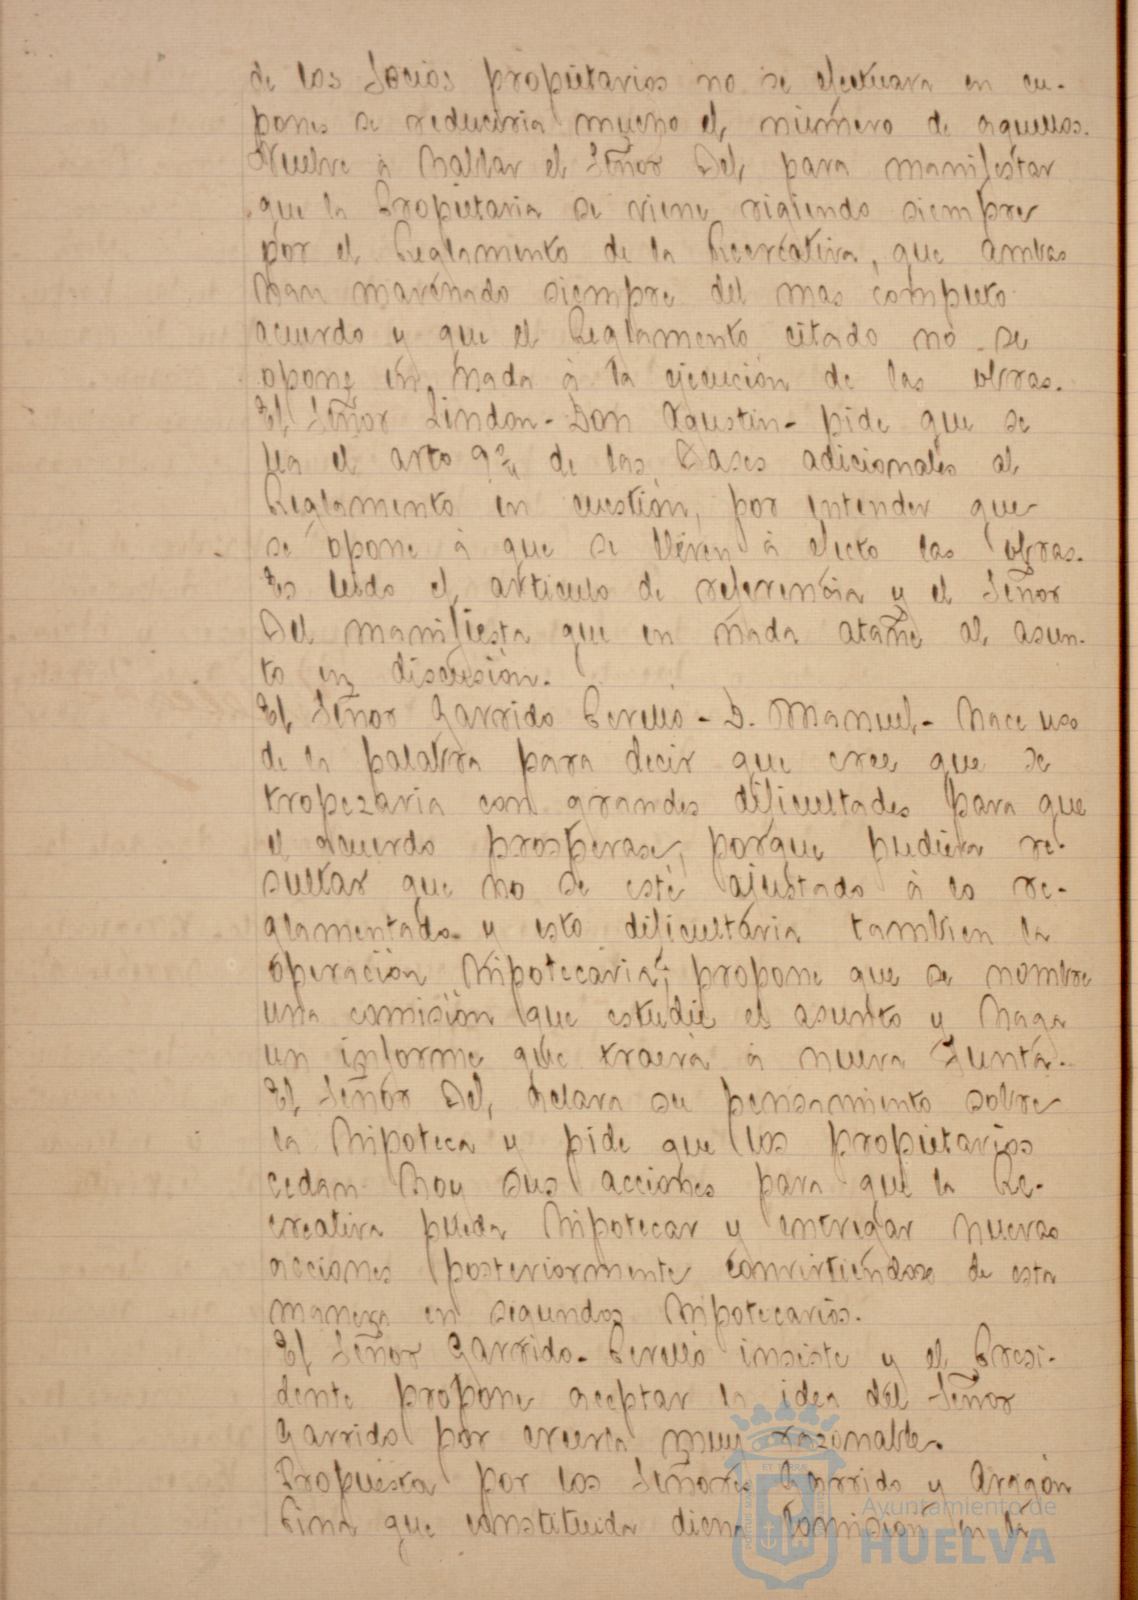 de los Socios propietarios no se efectuara en cu-
pones se reduciria mucho el número de aquellos.
Vuelve á hablar el Señor Del, para manifestar
que la Propietaria se viene rigiendo siempre
por el Reglamento de la Recreativa, que ambas
han marchado siempre del mas completo
acuerdo y que el Reglamento citado no se
opone en nada á la ejecución de las obras.
El Señor Lindon - Don Agustin - pide que se
lea el arto 9º de las Bases adicionales al
Reglamento en cuestión, por entender que
se opone á que se lleven á efecto las obras.
Es leido el articulo de referencia y el Señor
Del manifiesta que en nada atañe al asun-
to en discusión.
El Señor Garrido Perelló - D. Manuel - hace uso
de la palabra para decir que cree que se
tropezaria con grandes dificultades para que
el acuerdo prosperase, porque pudiera re-
sultar que no se esté ajustado á lo re-
glamentado y esto dificultaria tambien la
operación hipotecaria; propone que se nombre
una comisión que estudie el asunto y haga
un informe que traerá á nueva Junta.
El Señor Del, aclara su pensamiento sobre
la hipoteca y pide que los propietarios
cedan hoy sus acciones para que la Re-
creativa pueda hipotecar y entregar nuevas
acciones posteriormente convirtiendose de esta
manera en segundos hipotecarios.
El Señor Garrido Perelló insiste y el Presi-
dente propone aceptar la idea del Señor
Garrido por creerla muy razonable.
Propuesta por los Señores Garrido y Aragón
Pina que constituida dicha Comisión en la
Ayuntamiento de
HUELVA